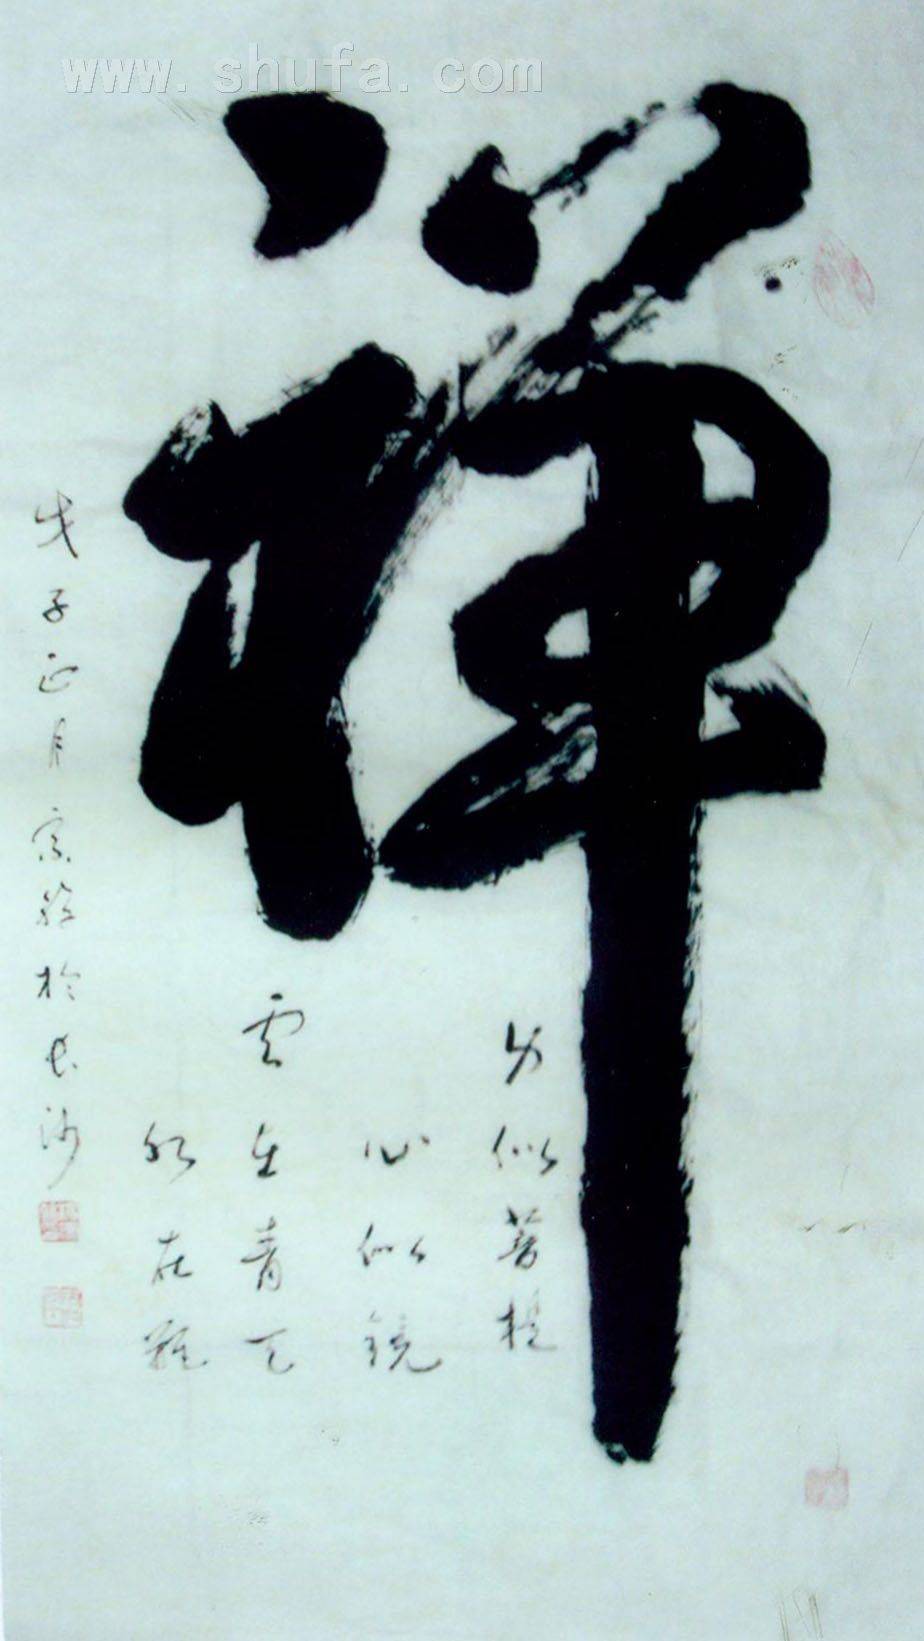 www.shufa.com
禅
身似菩提
心似镜
雲在青天
水在瓶
戊子正月於长沙